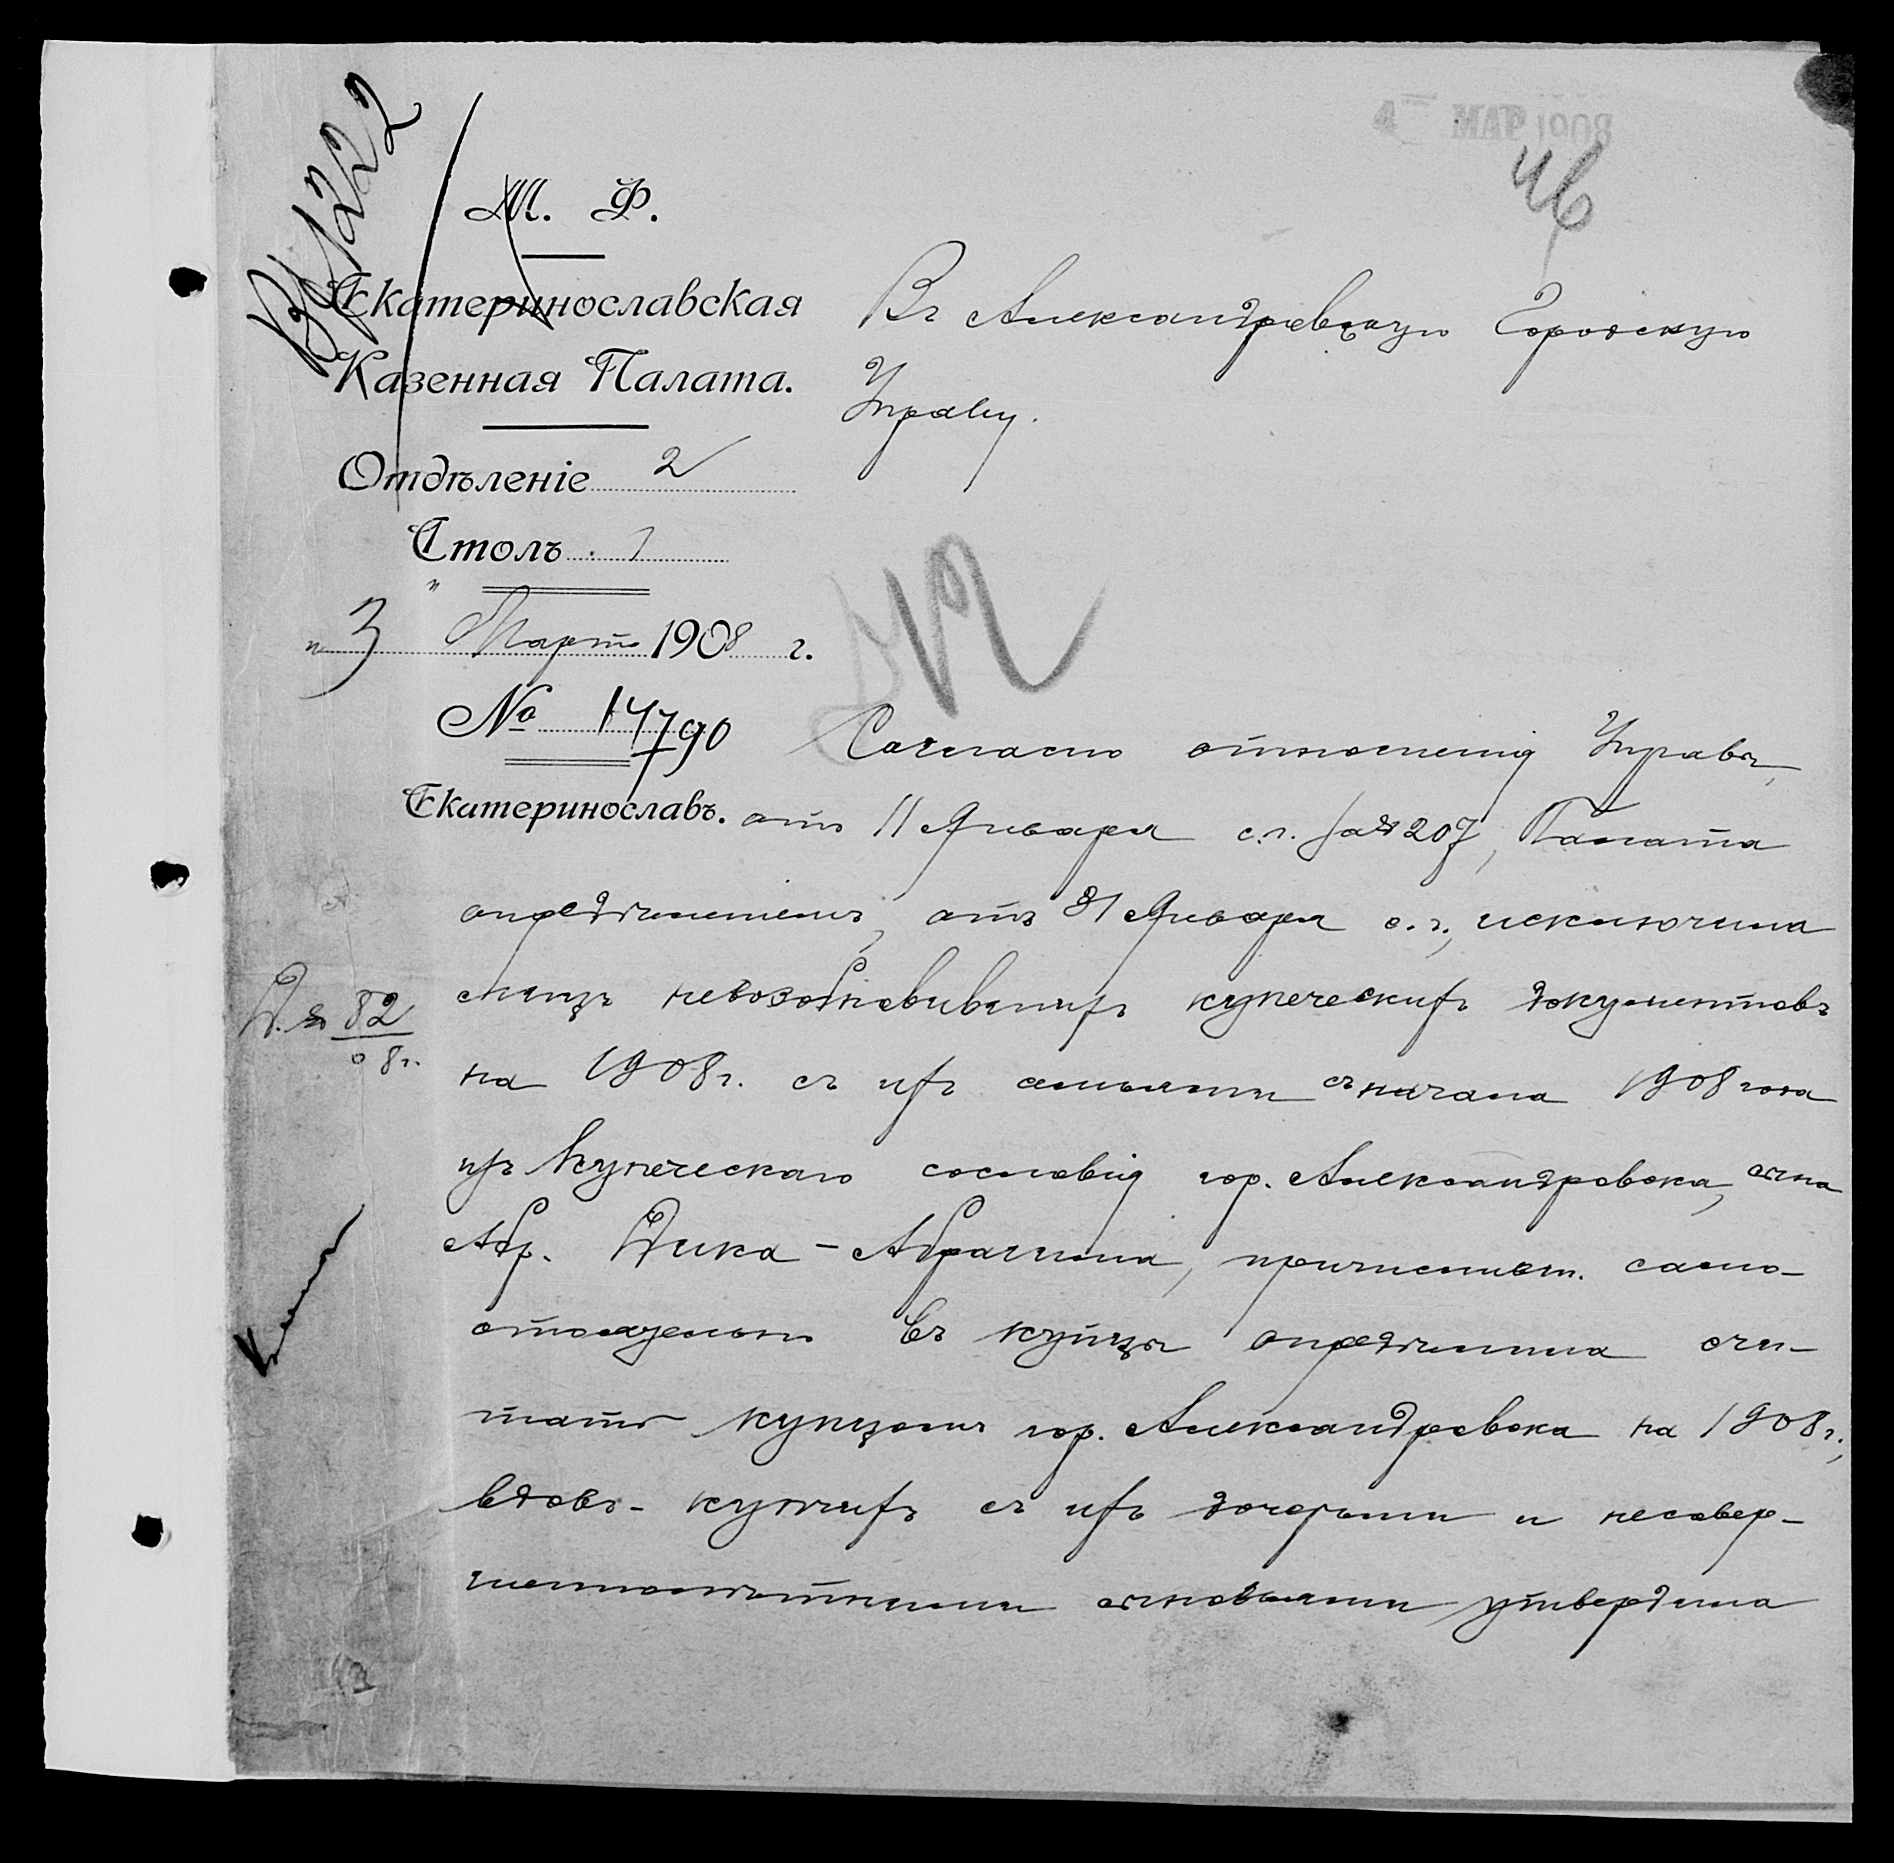 4 МАР 1908
46
Вх 1222
М. Ф.
Екатеринославская
Казенная Палата.
Отдѣленіе 2
Столъ 1
"3" Марта 1908 г.
№ 14790
Екатеринославъ.
Въ Александровскую Городскую
Управу.
Согласно отношенія Управы,
отъ 11 Января с.г. за № 207, Палата
опредѣленіемъ, отъ 31 Января с.г., исключила
лицъ невозобновившихъ купеческихъ документовъ
на 1908 г. съ ихъ семьями съ начала 1908 года
изъ Купеческаго сословія гор. Александровска, сына
Абр. Дика - Абрама, причислит. само-
стоятельно въ купцы опредѣлила счи-
тать купцомъ гор. Александровска на 1908 г.,
вдовъ - купчихъ съ ихъ дочерьми и несовер-
шеннолѣтними сыновьями утвердила
Д. № 82
08 г.